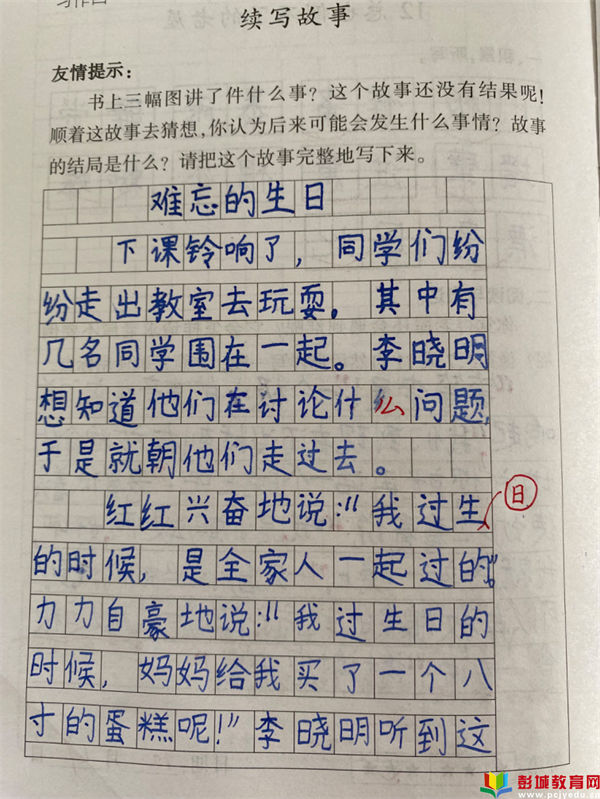 续写故事
友情提示：
书上三幅图讲了件什么事？这个故事还没有结果呢！
顺着这故事去猜想，你认为后来可能会发生什么事情？故事
的结局是什么？请把这个故事完整地写下来。
难忘的生日
下课铃响了，同学们纷
纷走出教室去玩耍。其中有
几名同学围在一起。李晓明
想知道他们在讨论什么问题，
于是就朝他们走过去。
红红兴奋地说：“我过生日
的时候，是全家人一起过的。”
力力自豪地说：“我过生日的
时候，妈妈给我买了一个八
寸的蛋糕呢！”李晓明听到这
彭城教育网
www.pcjyedu.cn